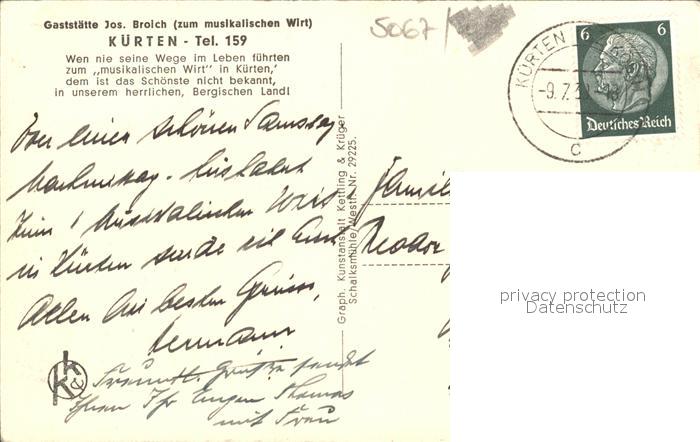 Gaststätte Jos. Broich (zum musikalischen Wirt)
KÜRTEN - Tel. 159
Wen nie seine Wege im Leben führten
zum „musikalischen Wirt" in Kürten,
dem ist das Schönste nicht bekannt,
in unserem herrlichen, Bergischen Land!
5067/
KÜRTEN
-9.7.3
c
6 6
Deutsches Reich
Von einer schönen Samstag-
Nachmittag-Ausfahrt
zum musikalischen Wirt
in Kürten sende ich Euch
Allen die besten Grüsse,
Hermann
Freundl. Grüße sendet
Ihnen Ihr Eugen Thomas
mit Frau
Graph. Kunstanstalt Kettling & Krüger
Schalksmühle/Westf. Nr. 29225.
Famil
kk
privacy protection
Datenschutz